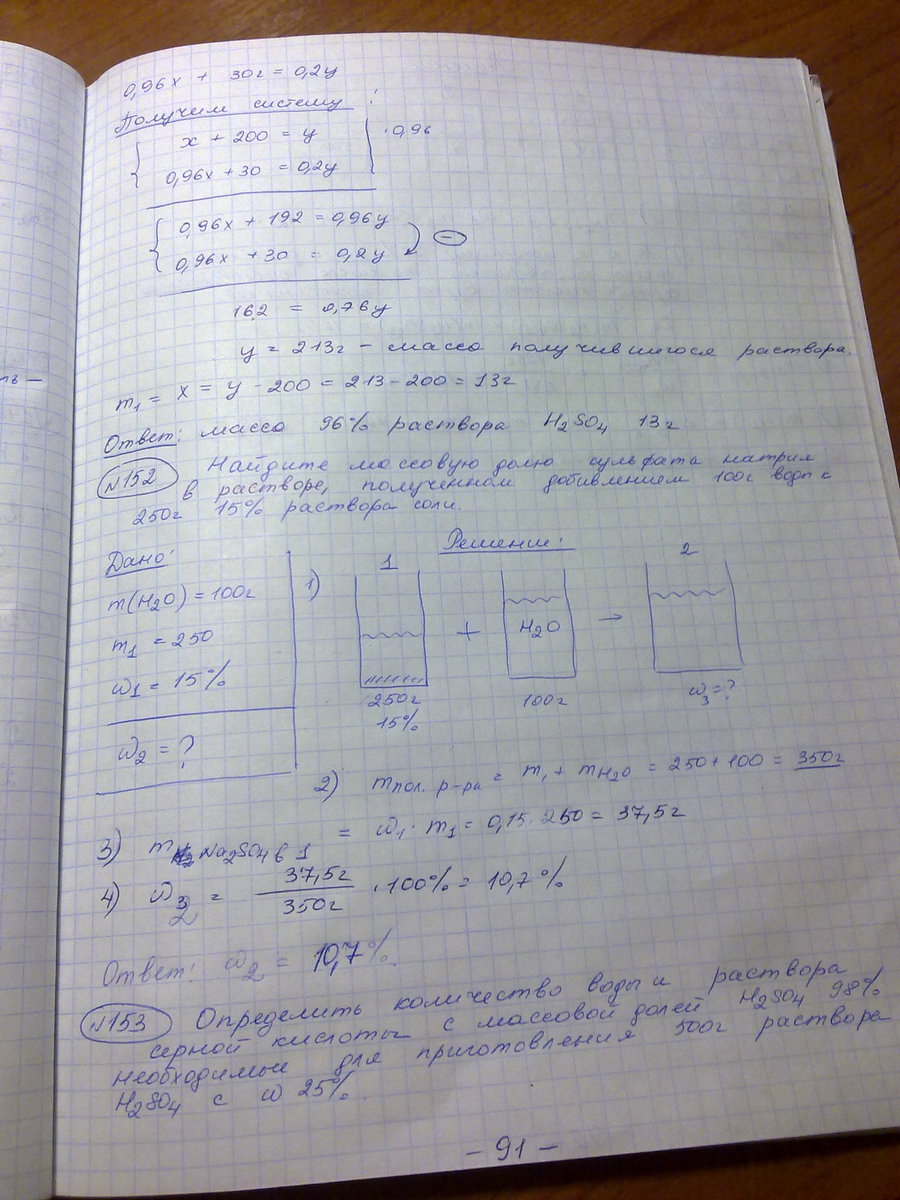 0,96x + 30г = 0,2y
Получим систему:
x + 200 = y | ·0,96
0,96x + 30 = 0,2y
0,96x + 192 = 0,96y
0,96x + 30 = 0,2y
162 = 0,76y
y = 213г – масса получившегося раствора.
m1 = x = y - 200 = 213 - 200 = 13г
Ответ: масса 96% раствора H2SO4 13г
№152 Найдите массовую долю сульфата натрия
в растворе, полученном добавлением 100г воды к
250г 15% раствора соли.
Дано:
m(H2O) = 100г
m1 = 250
ω1 = 15%
ω2 = ?
Решение:
1) 1 + H2O → 2
250г 100г ω3 = ?
15%
2) mпол. р-ра = m1 + mH2O = 250 + 100 = 350г
3) m Na2SO4 в 1 = ω1 · m1 = 0,15 · 250 = 37,5г
4) ω2 = 37,5г / 350г · 100% = 10,7%
Ответ: ω2 = 10,7%
№153 Определить количество воды и раствора
серной кислоты с массовой долей H2SO4 98%
необходимые для приготовления 500г раствора
H2SO4 с ω 25%.
- 91 -